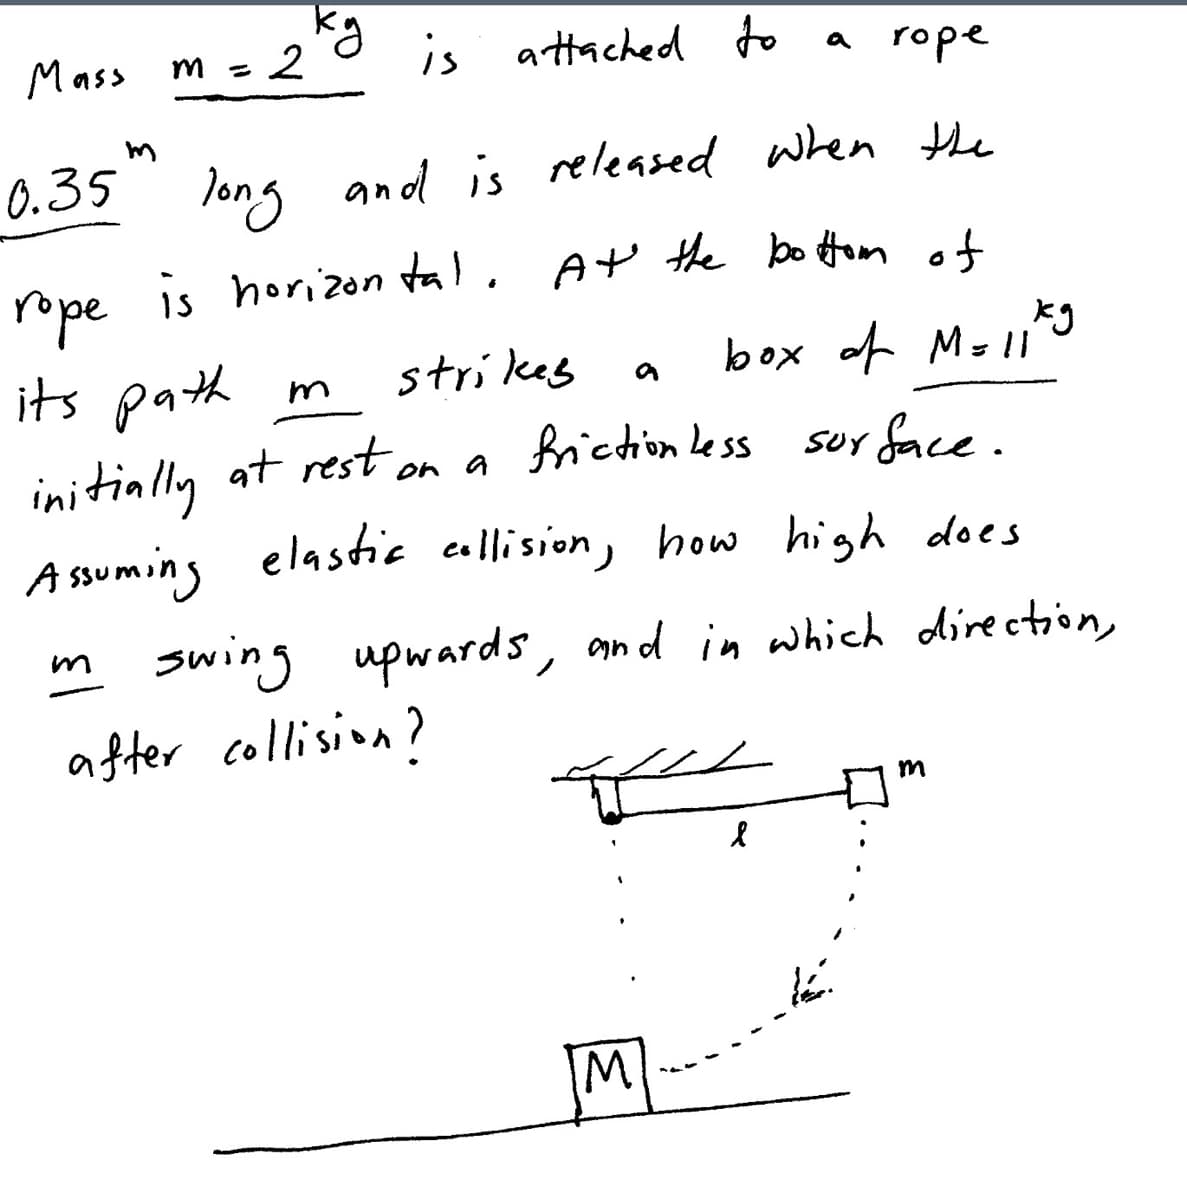 Mass m = 2 kg is attached to a rope
0.35 m long and is released when the
rope is horizontal. At the bottom of
its path m strikes a box of M=11 kg
initially at rest on a frictionless surface.
Assuming elastic collision, how high does
m swing upwards, and in which direction,
after collision?
m
l
M